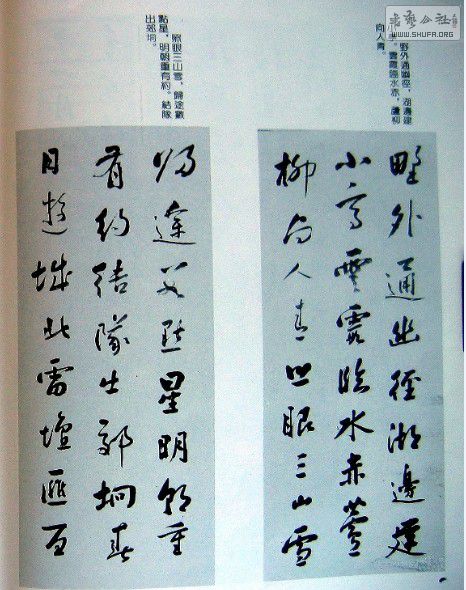 书艺公社
WWW.SHUFA.ORG
野外通幽徑，湖邊建
小亭。雲霞臨水赤，蘆柳
向人青。
照眼三山雪，歸途數
點星，明朝重有約。結隊
出郊坰。
野外通幽徑湖邊建
小亭雲霞臨水赤蘆
柳向人青照眼三山雪
歸途數點星明朝重
有約結隊出郊坰春
日遊城北雷壇匯百